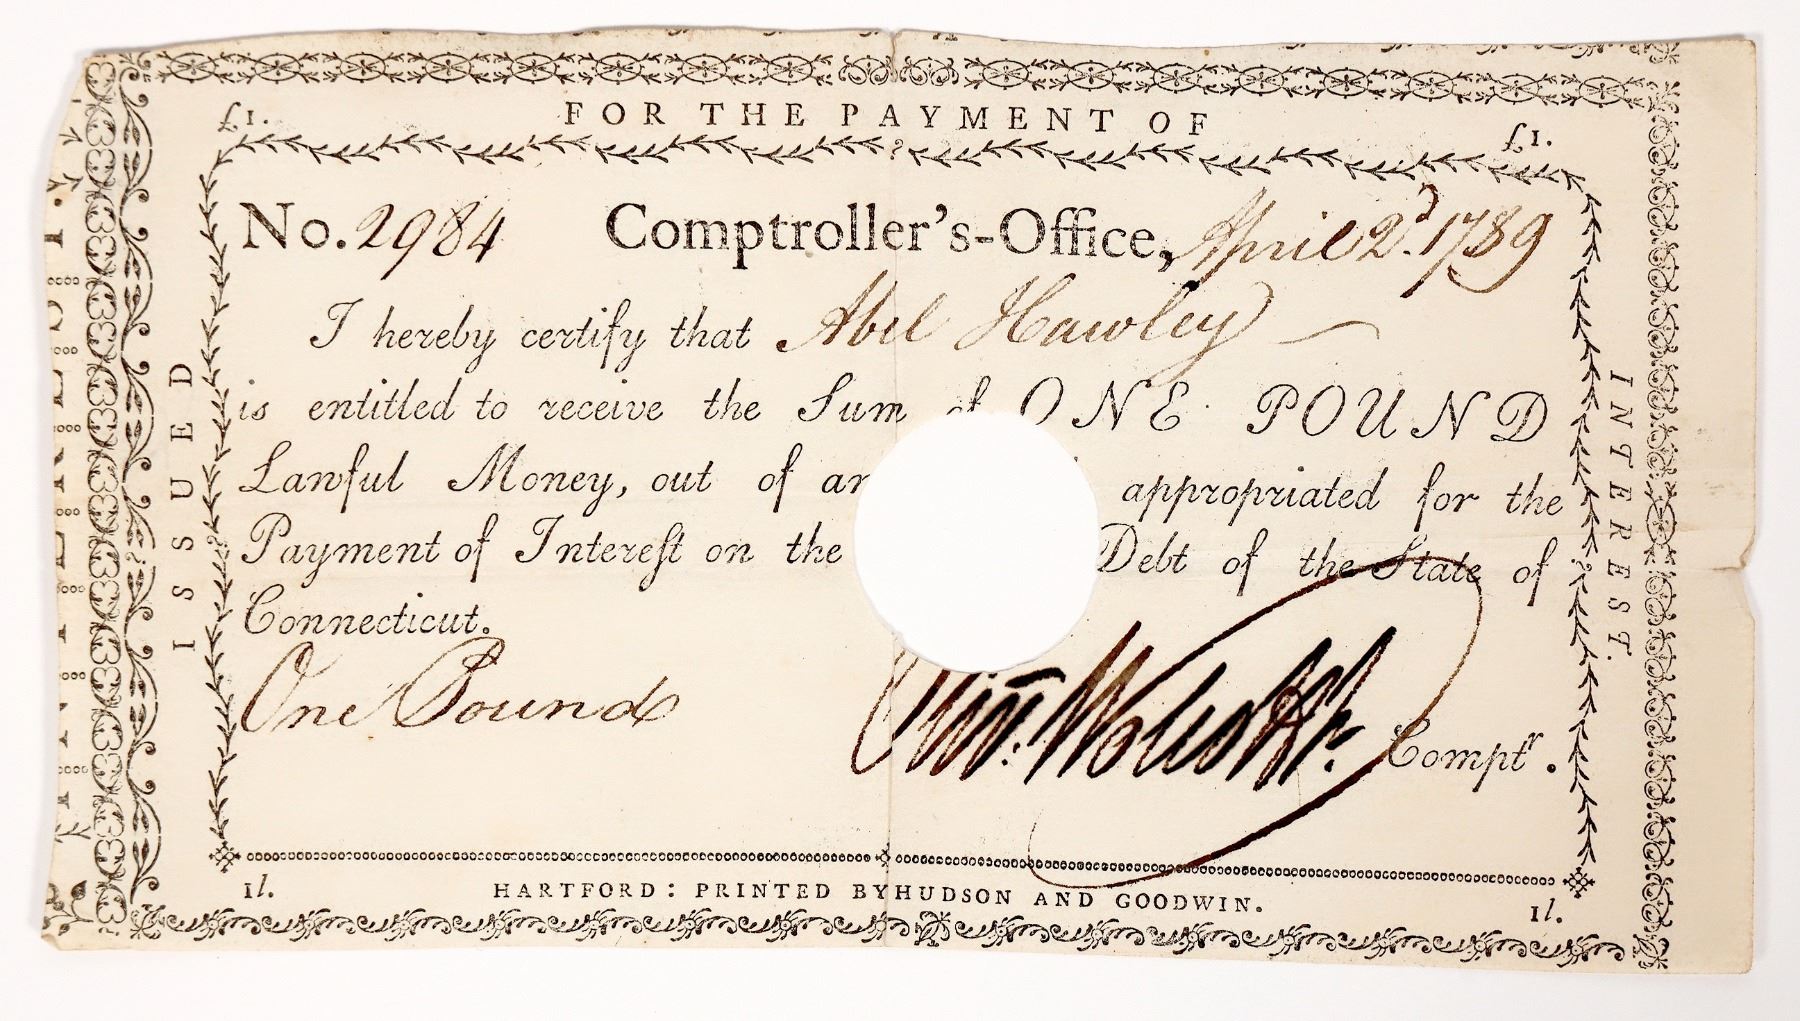 FOR THE PAYMENT OF
£1. £1.
No. 2984 Comptroller's-Office, April 2d. 1789
I hereby certify that Abel Hawley
is entitled to receive the Sum of ONE POUND
Lawful Money, out of appropriated for the
Payment of Intereſt on the Debt of the State of
Connecticut.
One Pound Olivr. Wolcott Jr. Comptr.
1l. HARTFORD: PRINTED BY HUDSON AND GOODWIN. 1l.
ISSUED
INTEREST.